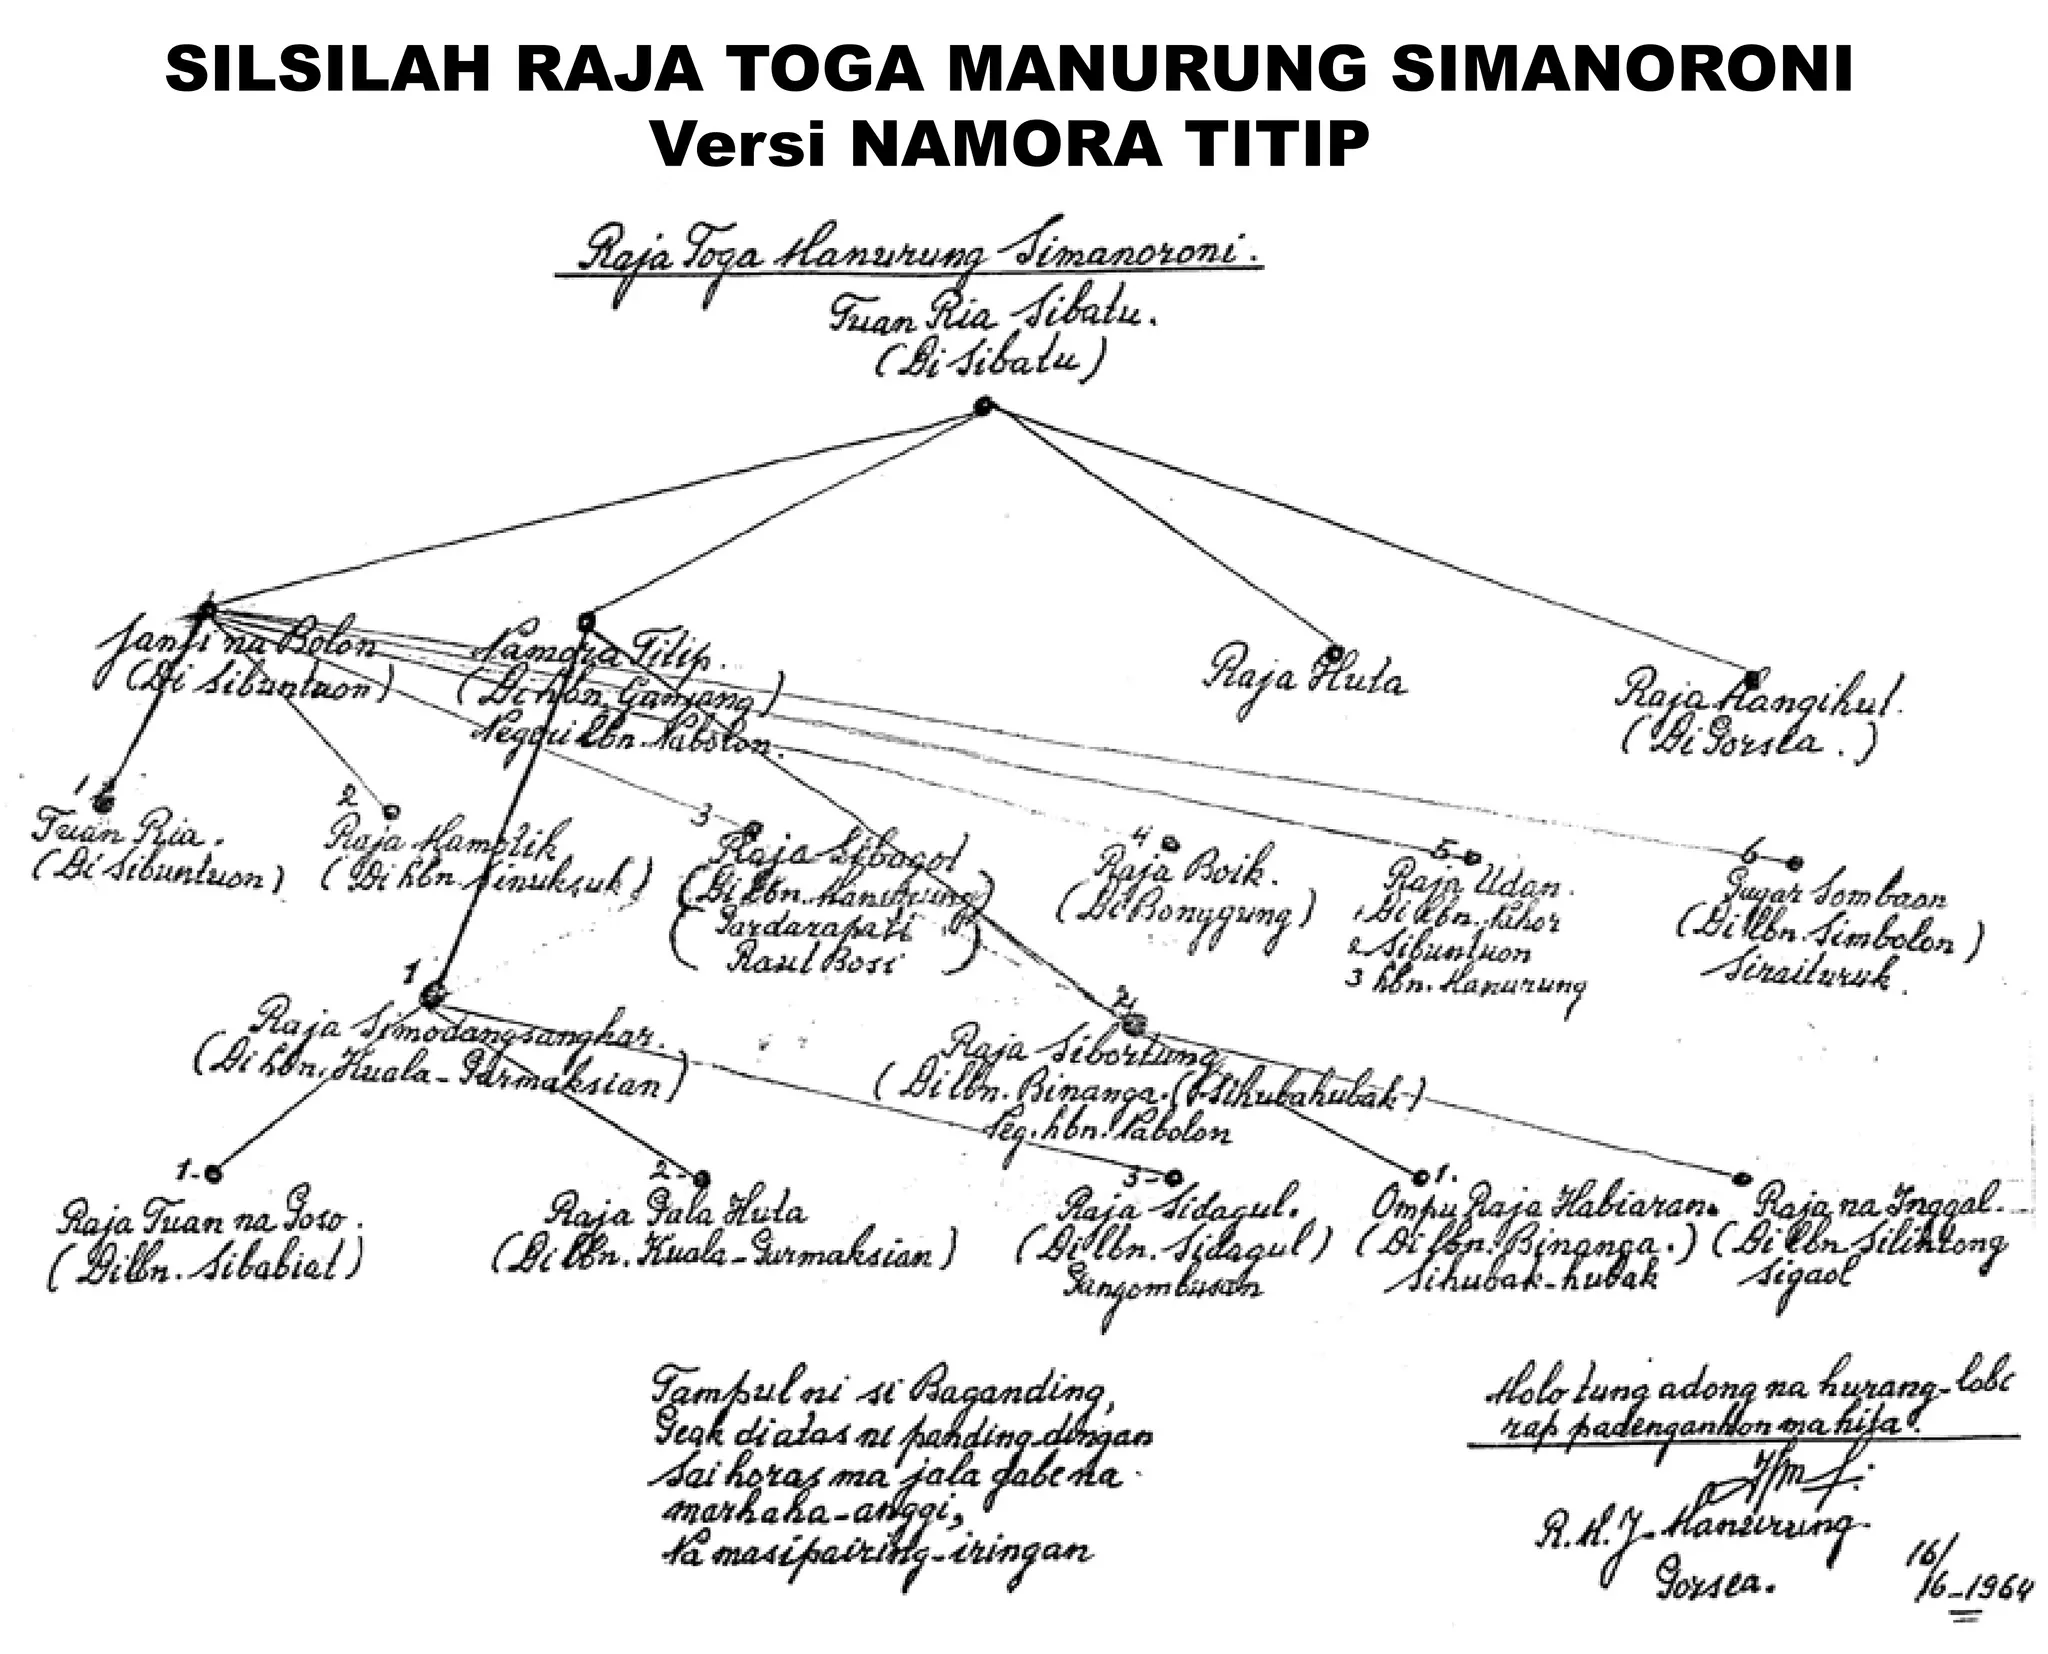 SILSILAH RAJA TOGA MANURUNG SIMANORONI
Versi NAMORA TITIP
Raja Toga Manurung Simanoroni.
Tuan Ria Sibatu.
(Di Sibatu)
Janji na Bolon
(Di Sibuntuon)
Namora Titip.
(Di hbn. Ganjang)
Negeri lbn. Nabolon.
Raja Huta
Raja Mangihut.
(Di Porsea.)
1
Tuan Ria.
(Di Sibuntuon)
2
Raja Mampitik
(Di hbn. Sinuksuk)
3
Raja Sibagot
(Di lbn. Manurung)
(Pardarapati
Raut Bosi)
4
Raja Boik.
(Di Bonggung)
5
Raja Udan.
1 Di lbn. Pohor
2 Sibuntuon
3 hbn. Manurung
6
Pugar Sombaon
(Di lbn. Simbolon)
Siraituruk.
1
Raja Simodangsangkar.
(Di hbn. Kuala-Parmaksian)
2
Raja Sibortung
(Di lbn. Binanga. (Sihubahubak)
Neg. hbn. Nabolon
1-
Raja Tuan na Poso.
(Di lbn. Sibabiat)
2-
Raja Pala Huta
(Di lbn. Kuala-Parmaksian)
3-
Raja Sidagul.
(Di lbn. Sidagul)
Pangombusan
1.
Ompu Raja Habiaran.
(Di lbn. Binanga.)
Sihubak-hubak
Raja na Inggal.
(Di lbn Silintong
Sigaol
Tampul ni si Baganding,
Peak diatas ni panding-dingan
Sai horas ma jala gabe na
marhaha-anggi,
Na masipairing-iringan
Molo tung adong na hurang-lobi
rap padengankon ma hita.
R.M.J. Manurung
Porsea.
16/
/6-1964